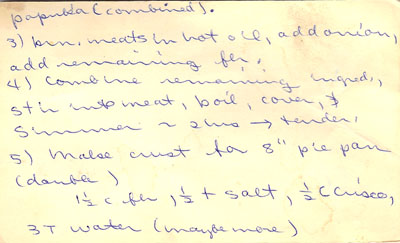 paprika (combined).
3) brn. meats in hot oil, add onion,
add remaining flr.
4) Combine remaining ingred.,
stir into meat, boil, cover, &
Simmer ~ 2 hrs → tender.
5) Make crust for 8" pie pan
(double)
1½ c flr, 1½ t salt, ½ C Crisco,
3 T water (maybe more)